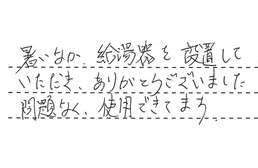 暑いなか、給湯器を設置して
いただき、ありがとうございました
問題なく、使用できてます。